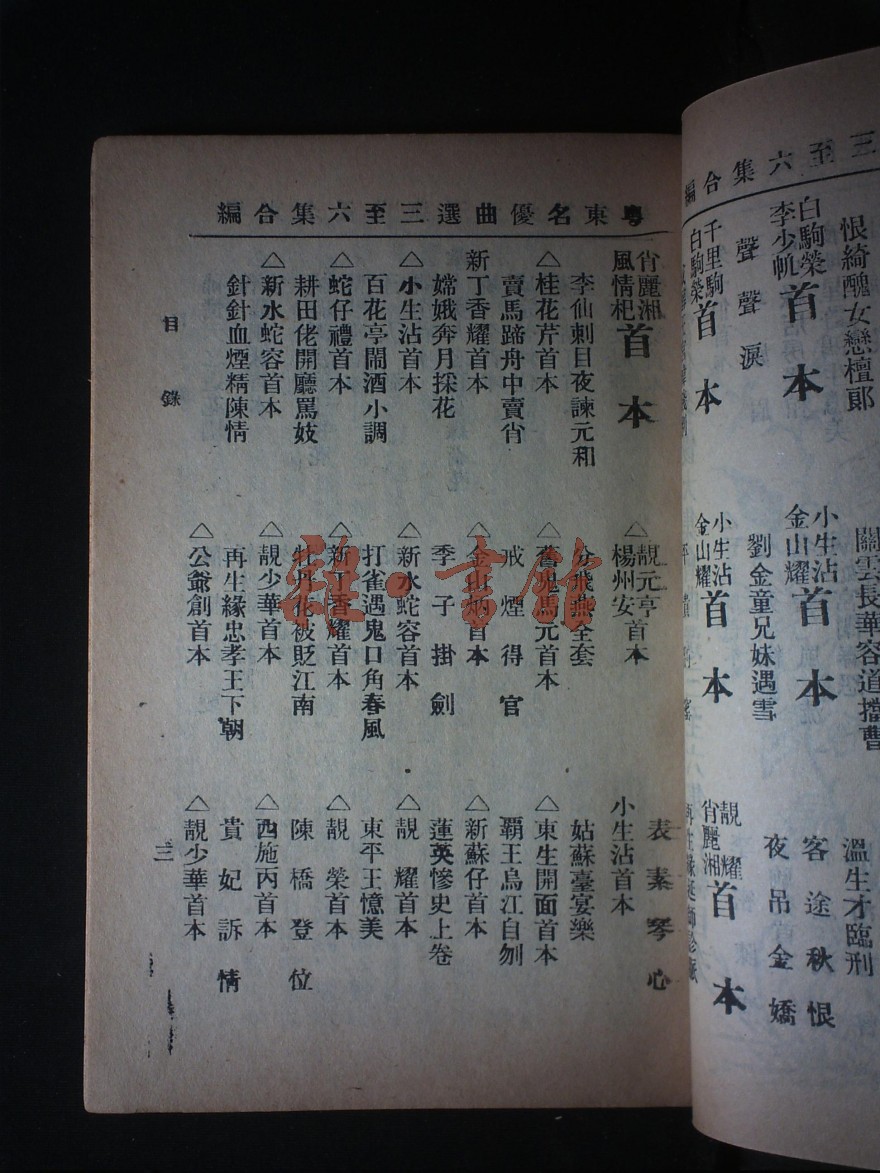 三至六集合編
恨綺醜女戀檀郞
白駒榮
李少帆
首本
聲聲淚
千里駒
白駒榮
首本
關雲長華容道擋曹
小生沾
金山耀
首本
劉金童兄妹遇雪
小生沾
金山耀
首本
溫生才臨刑
客途秋恨
夜吊金嬌
靚耀
肖麗湘
首本
粵東名優曲選三至六集合編
肖麗湘
風情杞
首本
李仙刺目夜諫元和
△桂花芹首本
賣馬蹄舟中賣肖
新丁香耀首本
嫦娥奔月採花
△小生沾首本
百花亭鬧酒小調
△蛇仔禮首本
耕田佬開廳罵妓
△新水蛇容首本
針針血煙精陳情
△靚元亭首本
楊州安
分飛燕全套
△舊鬼馬元首本
戒煙得官
△金山炳首本
季子掛劍
△新水蛇容首本
打雀遇鬼口角春風
△新丁香耀首本
牡丹花被貶江南
△靚少華首本
再生緣忠孝王下朝
△公爺創首本
表素琴心
小生沾首本
姑蘇臺宴樂
△東生開面首本
霸王烏江自刎
△新蘇仔首本
蓮英慘史上卷
△靚耀首本
東平王憶美
△靚榮首本
陳橋登位
△西施丙首本
貴妃訴情
△靚少華首本
目錄
三